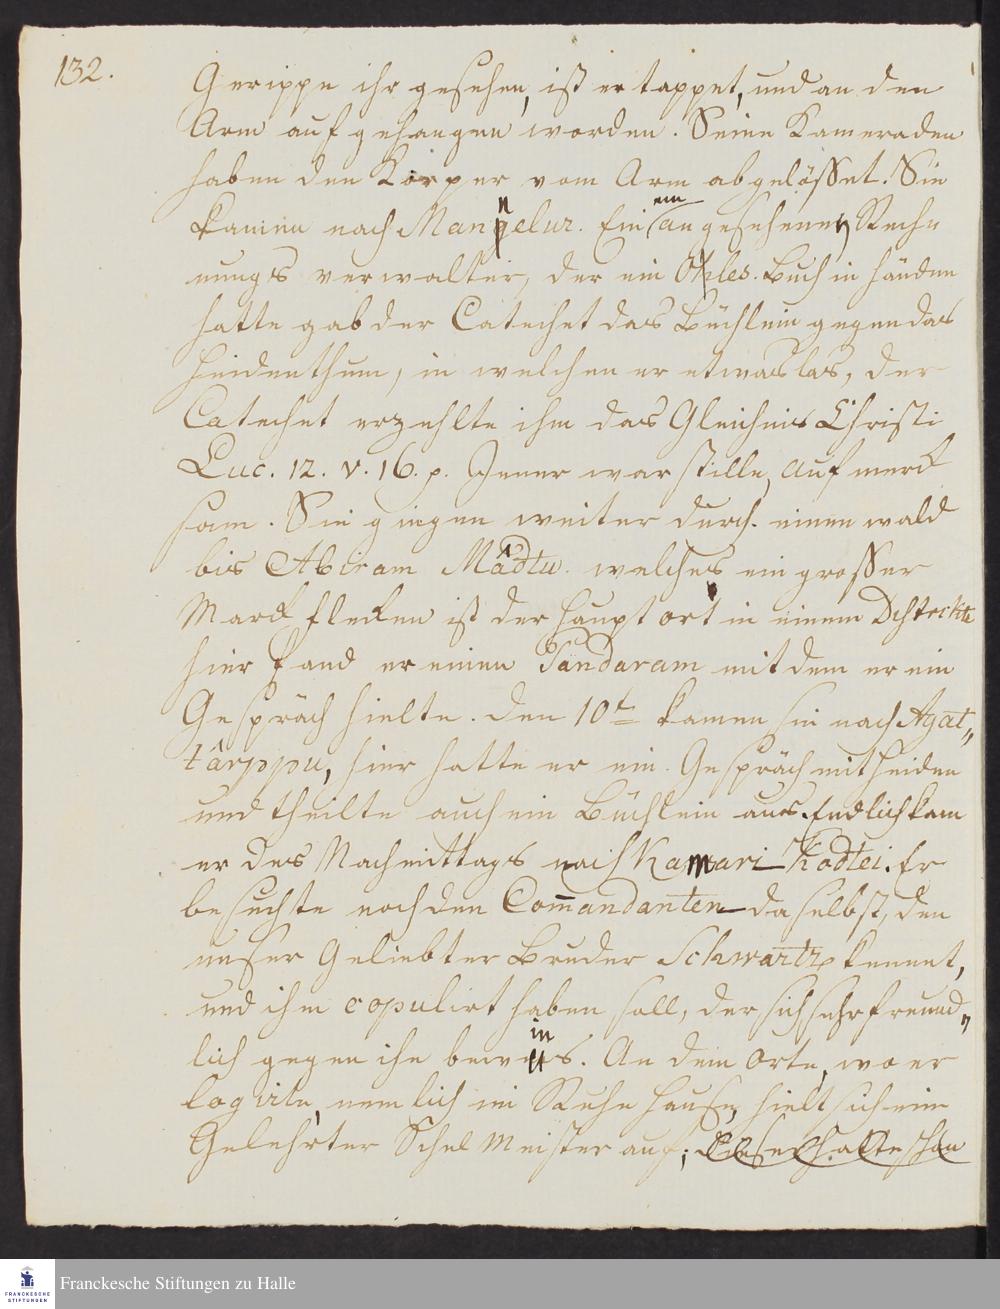 132.
Gerippe ihr gesehen, ist ertappet, und an den
Arm aufgehangen worden. Seine Kameraden
haben den Körper vom Arm abgelösset. Sie
kamen nach Mangelur. Ein angesehener Rech„
nungs verwalter, der ein Buch in händen
hatte gab der Catechet das Büchlein gegen das
Heidenthum, in welchen er etwas las, der
Catechet erzehlte ihm das Gleichnis Christi
Luc. 12. v. 16. p. Jener war stille, aufmerck
sam. Sie giengen weiter durch einen wald
bis Abiram Mâdtu. welches ein grosser
Marck flecken ist der haupt ort in einem Distrikte
hier fand er einen Pandaram mit dem er ein
Gespräch hielte. den 10t kamen sie nach Agat„
târppu, hier hatte er ein Gespräch mit heiden
und theilte auch ein Büchlein aus. Endlich kam
er des Nachmittags nach Kamari Kodtei. Er
besuchte noch den Com̄andanten daselbst, den
unser Geliebter Bruder Schwartz kennet,
und ihm copulirt haben soll, der sich sehr freund„
lich gegen ihn bewies. An dem Orte, wo er
logirte, nemlich im Ruhe Hause, hielt sich ein
Gelehrter Schul Meister auf; dieser hatte schon
Franckesche Stiftungen zu Halle
FRANCKESCHE
STIFTUNGEN